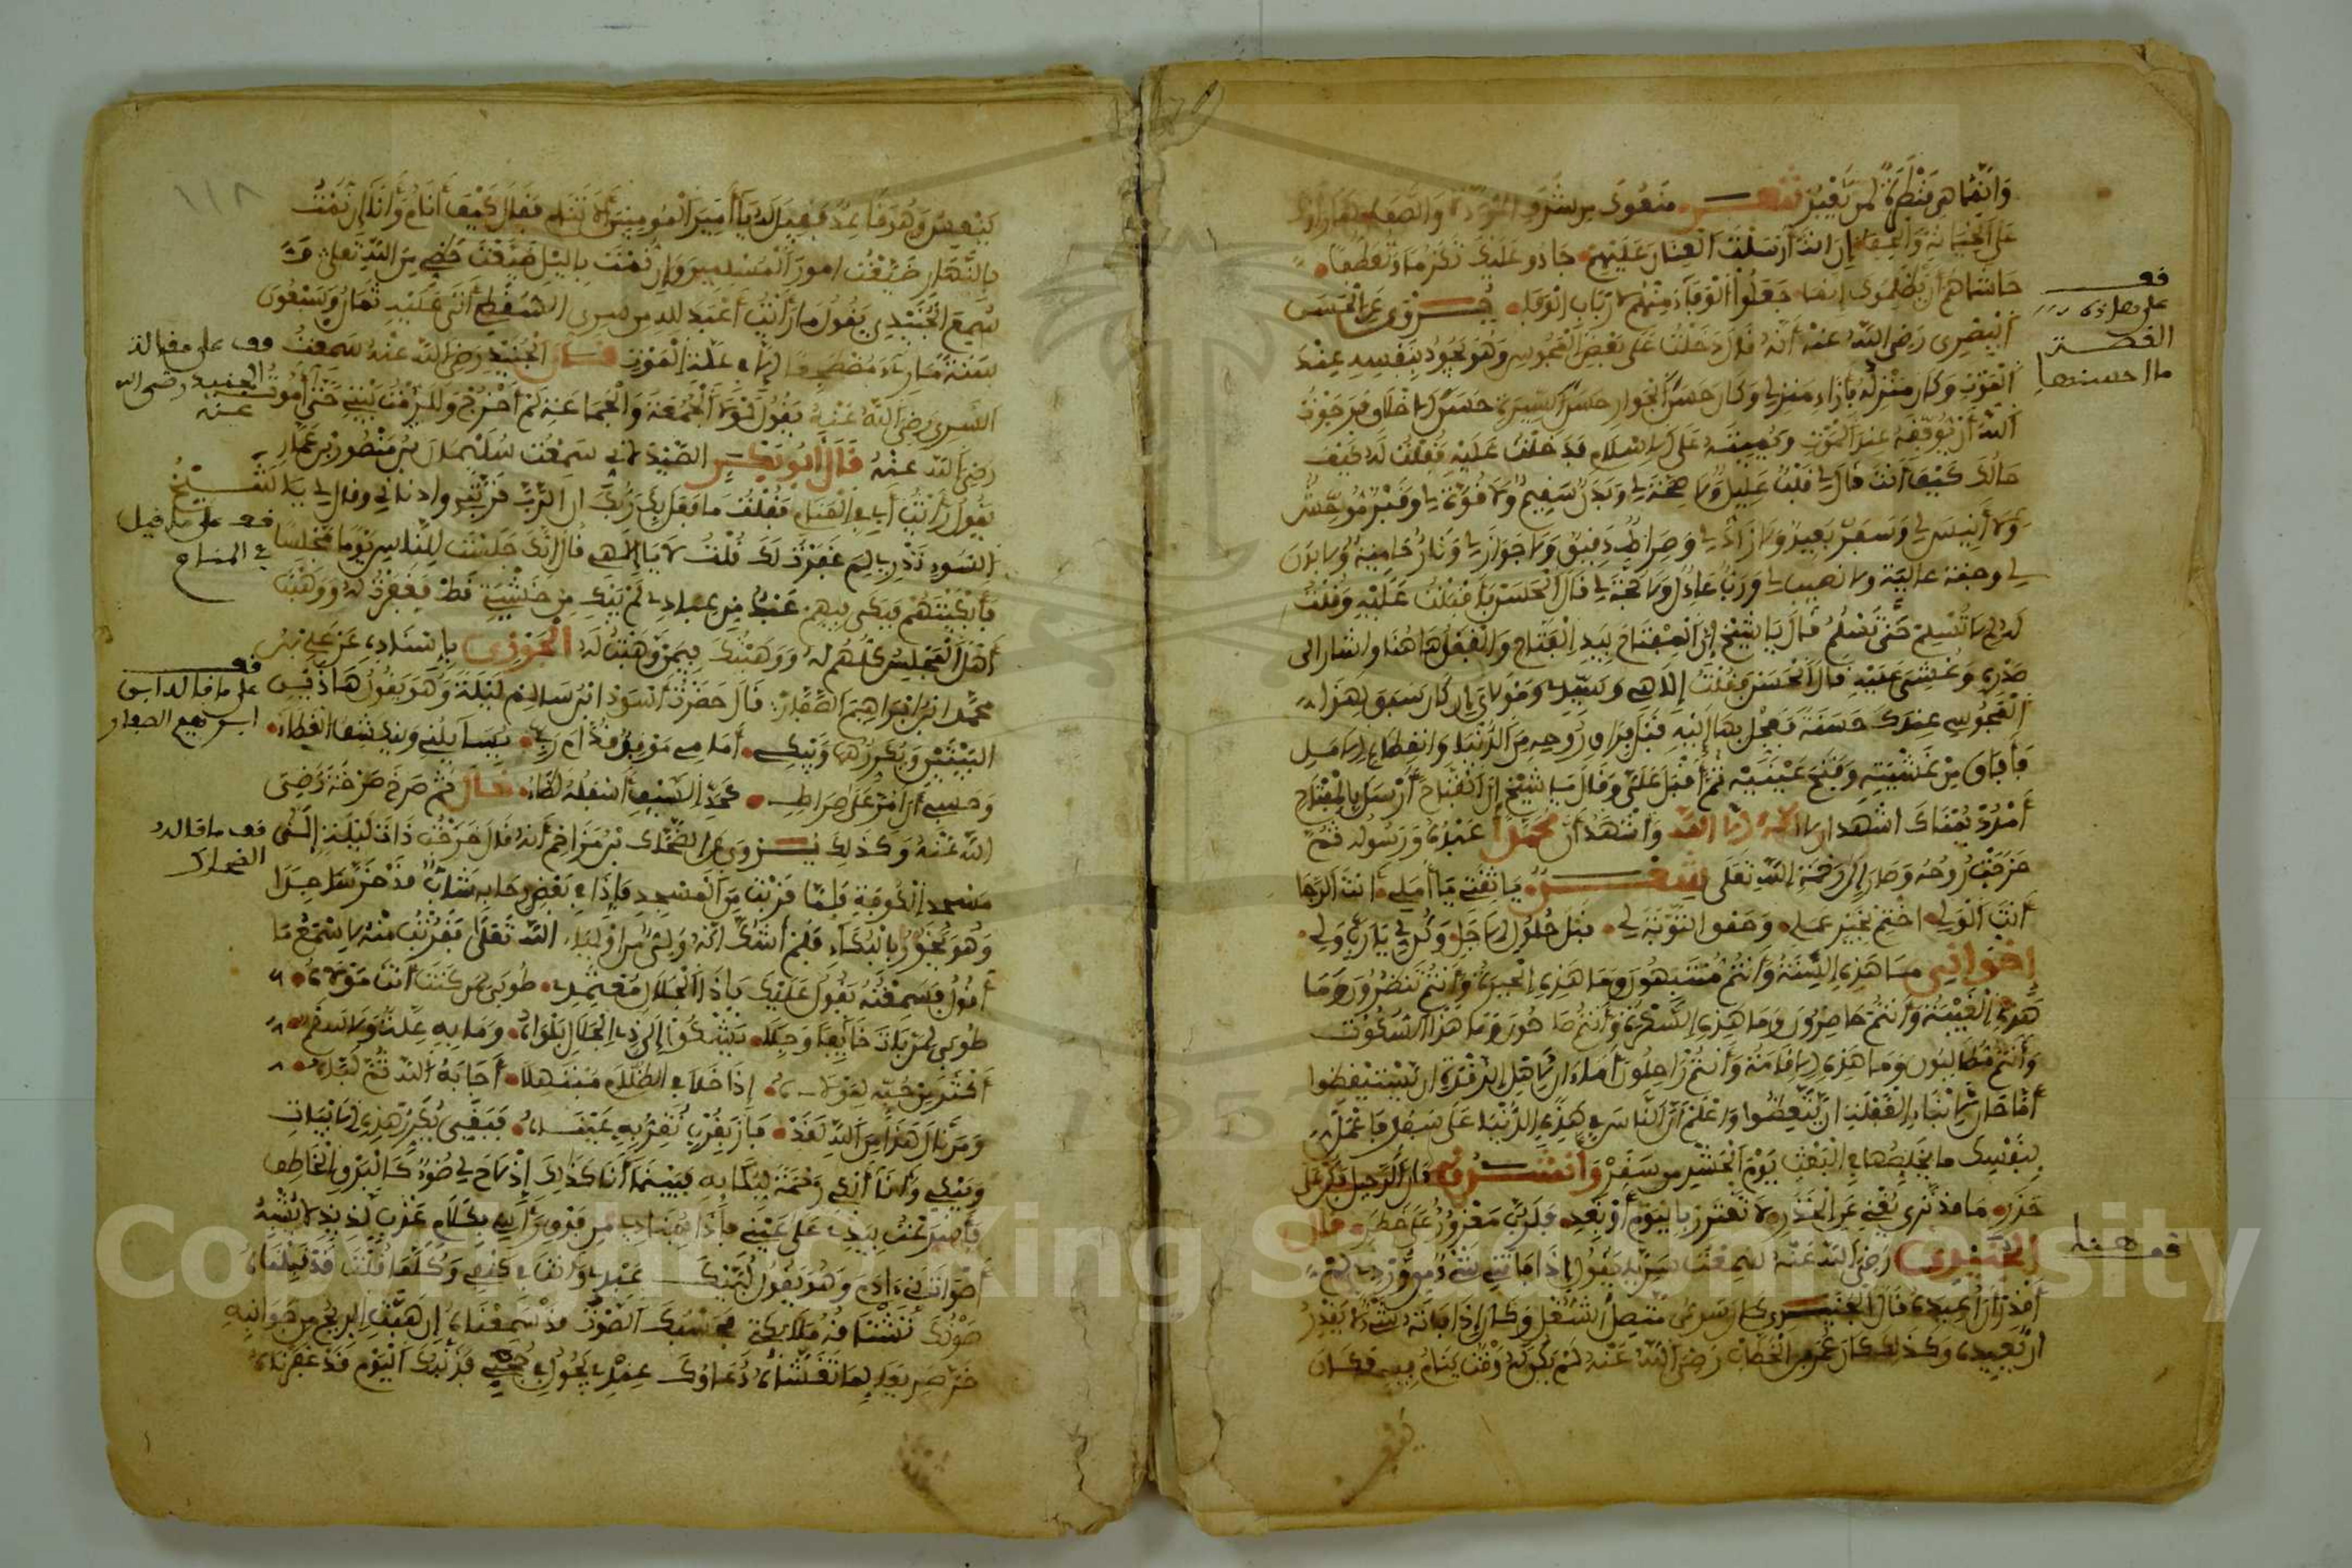 وَإِنَّمَا هِيَ قَنْطَرَةٌ لِمَنْ يَعْبُرُ شعر مَنَعُوكَ مِن شَرَفِ الْمَوَدَّة
عَلَى الْخِيَانَةِ إِنْ أَنْتَ أَرْسَلْتَ الْعِنَانَ عَلَيْهِمْ جَادُو عَلَيْكَ تَكَرُّمًا وَتَعَطُّفًا
حَاشَاهُمُ أَنْ يَظْلِمُوكَ جَعَلُوا الْوَفَاءَ مِنْهُمْ لِأَرْبَابِ الْوَفَا يُرْوَى عَنِ الْحَسَنِ
الْبَصْرِي رَضِيَ اللَّهُ عَنْهُ أَنَّهُ قَالَ دَخَلْتُ عَلَى بَعْضِ الْمَجُوسِ وَهُوَ يَجُودُ بِنَفْسِهِ عِنْدَ
الْمَوْتِ وَكَانَ مَنْزِلُهُ بِإِزَاءِ مَنْزِلِي وَكَانَ حَسَنَ الْجِوَارِ حَسَنَ السِّيرَةِ حَسَنَ الْأَخْلَاقِ فَرَجَوْتُ
اللَّهَ أَنْ يُوَفِّقَهُ عِنْدَ الْمَوْتِ وَيُمِيتَهُ عَلَى الْإِسْلَامِ فَدَخَلْتُ عَلَيْهِ فَقُلْتُ لَهُ كَيْفَ
حَالُكَ كَيْفَ أَنْتَ قَالَ لِي قَلْبٌ عَلِيلٌ وَلَا صِحَّةَ لِي وَبَدَنٌ سَقِيمٌ وَلَا قُوَّةَ لِي وَقَبْرٌ مُوحِشٌ
وَلَا أَنِيسَ لِي وَسَفَرٌ بَعِيدٌ وَلَا زَادَ لِي وَصِرَاطٌ دَقِيقٌ وَلَا جَوَازَ لِي وَنَارٌ حَامِيَةٌ وَلَا بَدَنَ
لِي وجنة عالية ولا نصيب لي وَرَبٌّ عَادِلٌ وَلَا حُجَّةَ لِي قَالَ الْحَسَنُ فَأَقْبَلْتُ عَلَيْهِ وَقُلْتُ
لَهُ لِمَ لَا تُسْلِمُ حَتَّى تَسْلَمُ قَالَ يَا شَيْخُ إِنَّ الْمِفْتَاحَ بِيَدِ الْفَتَّاحِ وَالْقُفْلَ هَاهُنَا واشار إلى
صَدْرِهِ وَغُشِيَ عَلَيْهِ قَالَ الْحَسَنُ فَقُلْتُ إِلَاهِي وَسَيِّدِي وَمَوْلَايَ إِنْ كَانَ سَبَقَ لِهَذَا
الْمَجُوسِي عِنْدَكَ حَسَنَةً فَعَجِّلْ بِهَا إِلَيْهِ قَبْلَ فِرَاقِ رُوحِهِ مِنَ الدُّنْيَا وَانْقِطَاعِ الْأَمَلِ
فَأَفَاقَ مِنْ غَشْيَتِهِ وَفَتَحَ عَيْنَيْهِ ثُمَّ أَقْبَلَ عَلَيَّ وَقَالَ يَا شَيْخُ إِنَّ الْفَتَّاحَ أَرْسَلَ بِالْمِفْتَاحِ
أُمْدُدْ يُمْنَاكَ أشهد أن لا إله إلا الله وَأَشْهَدُ أَنَّ مُحَمَّدًا عَبْدُهُ وَرَسُولُهُ ثُمَّ
خَرَجَتْ رُوحُهُ وَصَارَ إِلَى رَحْمَةِ اللَّهِ تَعَلَى شعر يَا ثِقَتِي يَا أَمَلِي أَنْتَ الرَّجَا
أَنْتَ الْوَلِي اخْتِمْ بِخَيْرٍ عَمَلِي وَحَقِّقِ التَّوْبَةَ لِي قَبْلَ حُلُولِ الْأَجَلِ وَكُنْ لِي يَا رَبِّ وَلِي
إِخْوَانِي مَا هَذِهِ السِّنَةُ وَأَنْتُمْ مُنْتَبِهُونَ وَمَا هَذِهِ الْحَيْرَةُ وَأَنْتُمْ تَنْظُرُونَ وَمَا
هَذِهِ الْغَيْبَةُ وَأَنْتُمْ حَاضِرُونَ وَمَا هَذِهِ السَّكْرَةُ وَأَنْتُمْ صَاحُونَ وَمَا هَذَا السُّكُونُ
وَأَنْتُمْ مُطَالَبُونَ وَمَا هَذِهِ الْإِقَامَةُ وَأَنْتُمْ رَاحِلُونَ أَمَا آنَ لِأَهْلِ الرَّقْدَةِ أَنْ يَسْتَيْقِظُوا
أَمَا حَانَ لِأَبْنَاءِ الْغَفْلَةِ أَنْ يَتَّعِظُوا وَاعْلَمْ أَنَّ النَّاسَ فِي هَذِهِ الدُّنْيَا عَلَى سَفَرٍ فَاعْمَلْ
لِنَفْسِكَ مَا يُخَلِّصُهَا فِي الْبَعْثِ يَوْمَ الْحَشْرِ مِن سَقَرْ وَأَنْشَدُوا دَانَ الرَّحِيلُ فَكُنْ عَلَى
حَذَرٍ مَا قَدْ تَرَى يُغْنِي عَنِ الْحَذَرِ لَا تَغْتَرِرْ بِالْيَوْمِ أَوْ بَغَدٍ فَلَرُبَّ مَغْرُورٍ عَلَى خَطَرٍ قال
الْجُنَيْدِي رَضِيَ اللَّهُ عَنْهُ سَمِعْتُ سَرِيًّا يَقُولُ إِذَا فَاتَنِي شَيْءٌ مِنْ وِرْدِي لَمْ
أَقْدِرْ أَنْ أُعِيدَهُ قَالَ الْجُنَيْدِي كَانَ سَرِيٌّ مُتَّصِلَ الشُّغْلِ وَكَانَ إِذَا فَاتَهُ شَيْءٌ لَا يَقْدِرُ
أَنْ يُعِيدَهُ وَكَذَلِكَ كَانَ عُمَرُ بْنُ الْخَطَّابِ رَضِيَ اللَّهُ عَنْهُ لَمْ يَكُنْ لَهُ وَقْتٌ يَنَامُ فِيهِ فَكَانَ
قف
على هذه
القصة
ما احسنها
قف هنا
١١٨
يَنْعِسُ وَهُوَ قَاعِدٌ فَقِيلَ لَهُ يَا أَمِيرَ الْمُومِنِينَ أَلَا تَنَامُ فَقَالَ كَيْفَ أَنَامُ وَأَنَا إِنْ نِمْتُ
بِالنَّهَارِ ضَيَّعْتُ أُمُورَ الْمُسْلِمِينَ وَإِنْ نِمْتُ بِاللَّيْلِ ضَيَّعْتُ حَظِّي مِنَ اللَّهِ تَعَلَى
سُمِعَ الْجُنَيْدِي يَقُولُ مَا رَأَيْتُ أَعْبَدَ لله من سري السَّقَطِي أَتَى عَلَيْهِ ثَمَانٌ وَتِسْعُونَ
سَنَةً مَا رُءِيَ مُضْطَجِعًا إِلَّا فِي عِلَّةِ الْمَوْتِ قال الْجُنَيْدُ رَضِيَ اللَّهُ عَنْهُ سَمِعْتُ
السَّرِي رَضِيَ اللَّهُ عَنْهُ يَقُولُ لَوْلَا الْجُمُعَةُ وَالْجَمَاعَةُ لَمْ أَخْرُجْ وَلَلَزِمْتُ بَيْتِي حَتَّى أَمُوتَ
رَضِيَ اللَّهُ عَنْهُ قَالَ أَبُو بَكْرٍ الصَّيْدَلَانِي سَمِعْتُ سُلَيْمَانَ بْنَ مَنْصُورِ بْنِ عَمَّارٍ
يَقُولُ رَأَيْتُ أَبِي فِي الْمَنَامِ فَقُلْتُ مَا فَعَلَ بِكَ رَبُّكَ إِنَّ الرَّبَّ قَرَّبَنِي وأدناني وقال لي يا شَيْخُ
السُّوءِ تَدْرِي لِمَ غَفَرْتُ لَكَ قُلْتُ لَا يَا إِلَاهِي قَالَ إِنَّكَ جَلَسْتَ لِلنَّاسِ يَوْمًا مَجْلِسًا
فَأَبْكَيْتَهُمْ فَبَكَى فِيهِمْ عَبْدٌ مِنْ عِبَادِي لَمْ يَبْكِ مِنْ خَشْيَتِي قَطْ فَغَفَرْتُ لَهُ وَوَهَبْتُ
أَهْلَ الْمَجْلِسِ كُلَّهُمْ لَهُ وَوَهَبْتُكَ فِيمَنْ وَهَبْتُ لَهُ الْجَوْزِي بِإِسْنَادِهِ عَنْ عَلِي بْنِ
مُحَمَّدِ ابْنِ إِبْرَاهِيمَ الصَّفَّارِ قَالَ حَضَرْتُ أَسْوَدَ ابْنَ سَالِمٍ لَيْلَةً وَهُوَ يَقُولُ هَاذَيْنِ
الْبَيْتَيْنِ وَيُكَرِّرُهُمَا وَيَبْكِي أَمَامِي مَوْقِفٌ قُدَّامَ رَبِّي يُسَائِلُنِي وَيَنْكَشِفُ الْغِطَاءُ
وَحَسْبِي أَنْ أَمُرَّ عَلَى صِرَاطٍ كَحَدِّ السَّيْفِ أَسْفَلُهُ لَظَاءُ قال ثُمَّ صَرَخَ صَرْخَةً رَضِيَ
اللَّهُ عَنْهُ وَكَذَلِكَ يُرْوَى عَنِ الضَّحَّاكِ بْنِ مُزَاحِمٍ أَنَّهُ قَالَ خَرَجْتُ ذَاتَ لَيْلَةٍ إِلَى
مَسْجِدِ الْكُوفَةِ فَلَمَّا قَرُبْتُ مِنَ الْمَسْجِدِ فَإِذَا فِي بَعْضِ رِحَابِهِ شَابٌّ قَدْ خَرَّ سَاجِدًا
وَهُوَ يَخُورُ بِالْبُكَاءِ فَلَمْ أَشُكَّ أَنَّهُ وَلِيٌّ مِنْ أَوْلِيَاءِ اللَّهِ تَعَلَى فَقَرُبْتُ مِنْهُ لِأَسْمَعَ مَا
يَقُولُ فَسَمِعْتُهُ يَقُولُ عَلَيْكَ يَا ذَا الْجَلَالِ مُعْتَمَدِي طُوبَى لِمَنْ كُنْتَ أَنْتَ مَوْلَاهُ
طُوبَى لِمَنْ بَاتَ خَائِفًا وَجِلًا يَشْكُو إِلَى ذِي الْجَلَالِ بَلْوَاهُ وَمَا بِهِ عِلَّةٌ وَلَا سَقَمٌ
أَكْثَرُ مِنْ حُبِّهِ لِمَوْلَاهُ إِذَا خَلَا فِي الظَّلَامِ مُبْتَهِلًا أَجَابَهُ اللَّهُ ثُمَّ لَبَّاهُ
وَمَنْ يَنَالُ هَذَا مِنَ اللَّهِ فَقَدْ فَازَ بِقُرْبٍ تَقَرُّ بِهِ عَيْنَاهُ فَبَقِيَ يُكَرِّرُ هَذِهِ الْأَبْيَاتَ
وَيَبْكِي وَأَنَا أَبْكِي رَحْمَةً لِبُكَائِهِ فَبَيْنَمَا أَنَا كَذَلِكَ إِذْ لَاحَ لِي ضَوْءٌ كَالْبَرْقِ الْخَاطِفِ
فَأَسْرَعْتُ بِيَدِي عَلَى عَيْنِي فَإِذَا مِنْ فَوْقِ رَأْسِهِ بِكَلَامٍ عَذْبٍ لَذِيذٍ لَا يُشْبِهُ
أَصْوَاتَ بَنِي ءادَمَ وَهُوَ يَقُولُ لَبَّيْكَ عَبْدِي وَأَنْتَ فِي كَنَفِي وَكُلَّمَا قُلْتَ قَدْ قَبِلْنَاهُ
صَوْتُكَ تَشْتَاقُهُ مَلَائِكَتِي فَحَسْبُكَ الصَّوْتُ قَدْ سَمِعْنَاهُ إِنْ هَبَّتِ الرِّيحُ مِنْ جَوَانِبِهِ
خَرَّ صَرِيعًا لِمَا تَغَشَّاهُ دُعَاؤُكَ عِنْدِي يَجُولُ فِي حُجُبِي فَذَنْبُكَ الْيَوْمَ قَدْ غَفَرْنَاهُ
قف على مقالة
الجنيد رضي الله
عنه
قف على ما قيل
في المنام
قف
على ما قاله ابن
ابراهيم الصفار
قف ما قاله
الضحاك